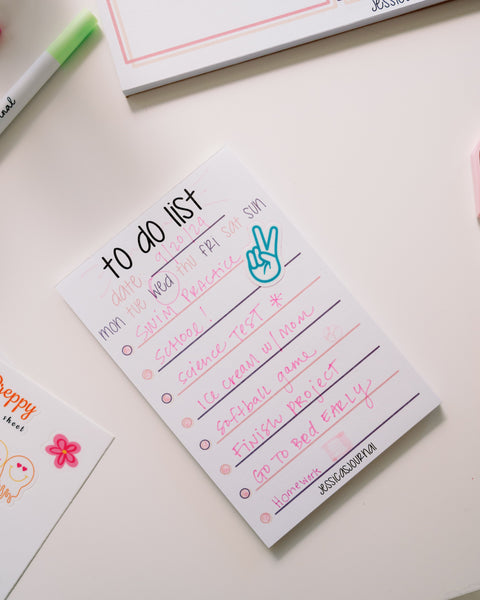 Jessic
nal
to do list
date: 9/20/24
mon tue wed thu FRI sat sun
SWIM PRACTICE
SCHOOL!
SCIENCE TEST *
ICE CREAM W/MOM
Softball game
FINISH PROJECT
GO TO BED EARLY
Homework
JESSICASJOURNAL
Preppy
sheet